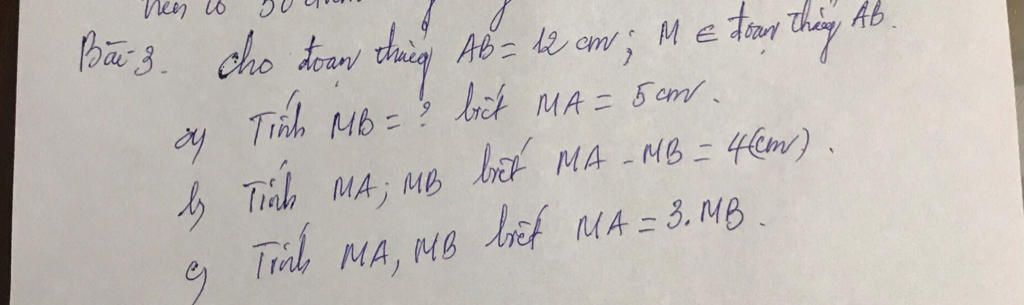 Bài 3. Cho đoạn thẳng AB = 12 cm; M ∈ đoạn thẳng AB.
a) Tính MB = ? biết MA = 5 cm.
b) Tính MA; MB biết MA - MB = 4(cm).
c) Tính MA, MB biết MA = 3. MB.